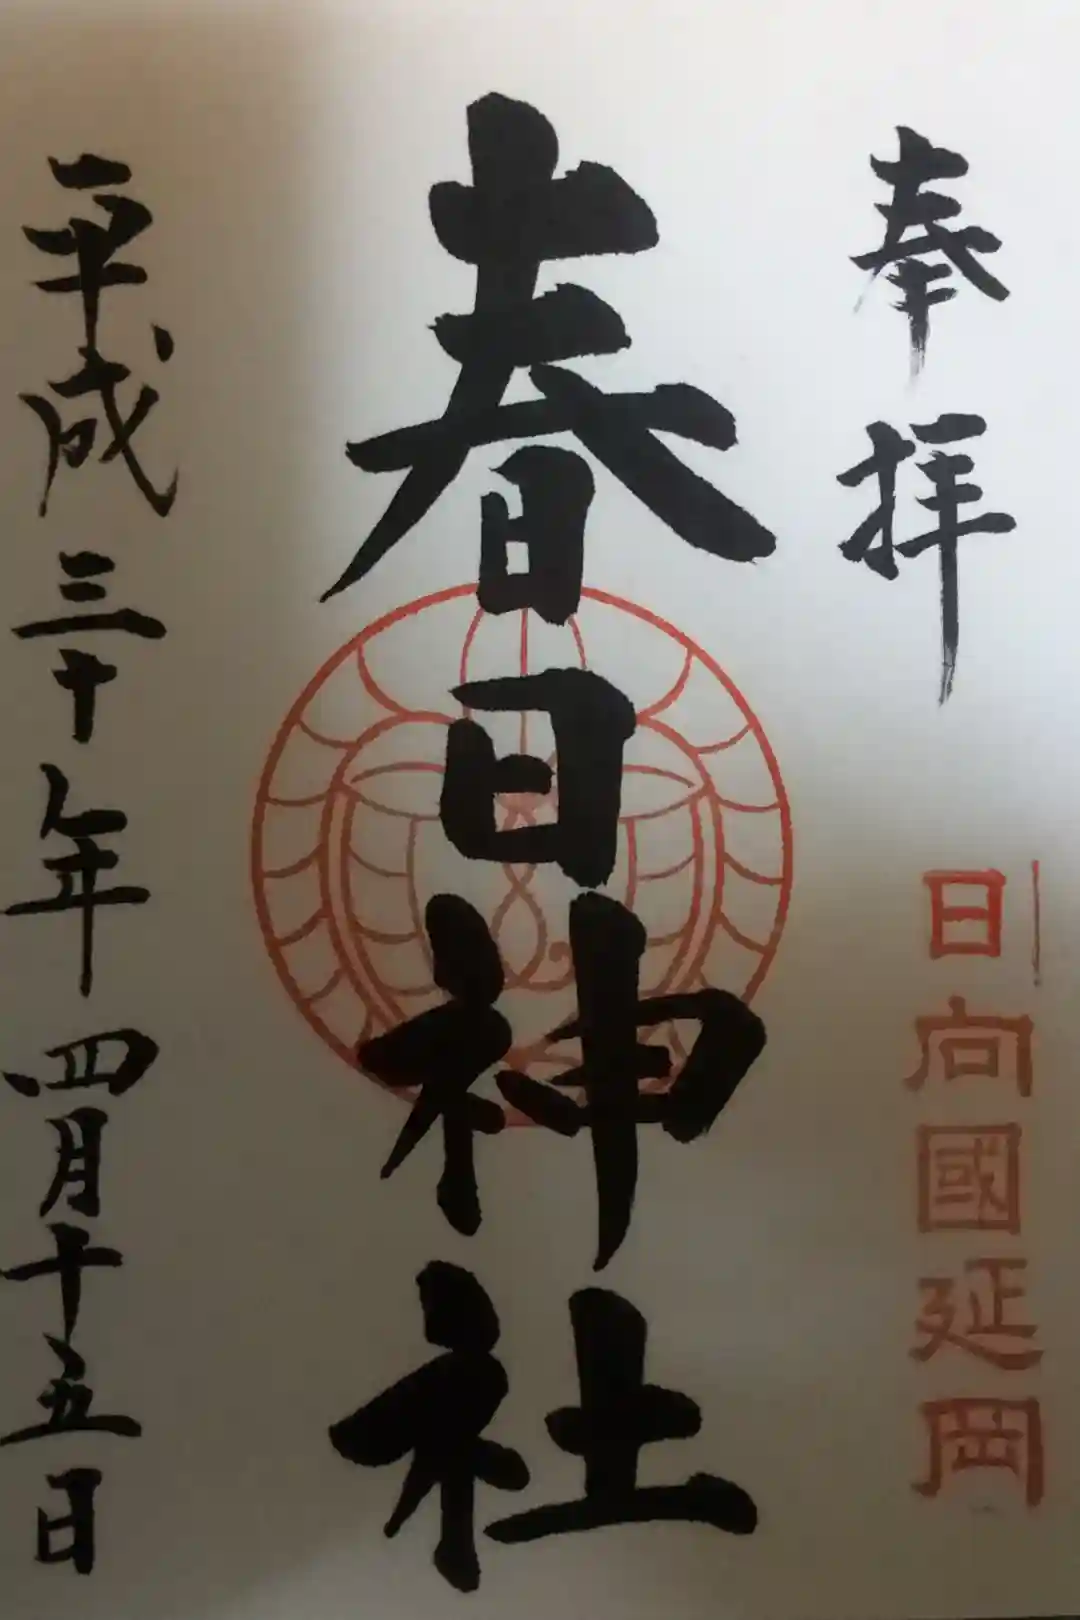 奉拝
日向國延岡
春日神社
平成三十年四月十五日